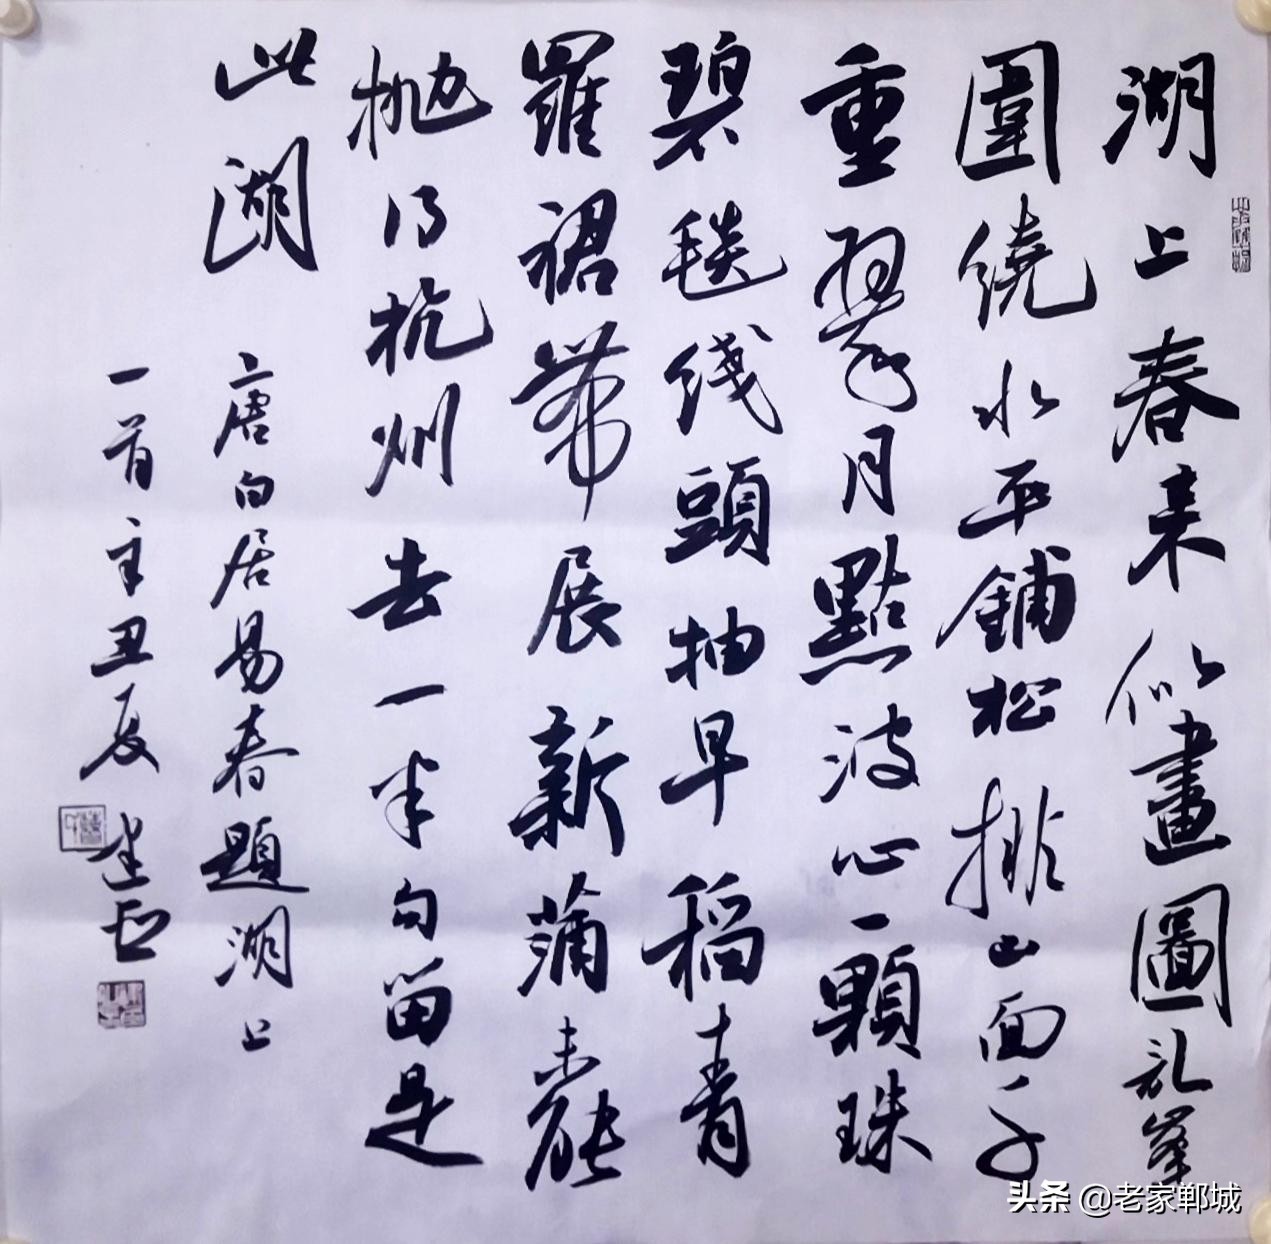 湖上春来似畫圖乱峯
圍繞水平鋪松排山面千
重翠月點波心一顆珠
碧毯线頭抽早稻青
羅裙帶展新蒲未能
抛得杭州去一半句留是
此湖
唐白居易春題湖上
一首辛丑夏
头条 @老家郸城